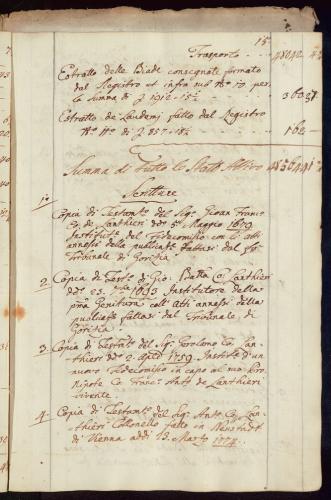 15
Trasporto 48042
Estratto delle Biade consegnate formato
dal Registro ut infra sub No. 10 per
la summa di 1912 15½ 3603
Estratto de Laudemj fatto dal Registro
No. 11 di 857 1 60
Summa di tutto lo Stato Attivo
Scritture
1. Copia di Testamto. del Sigr. Gioan Franco.
Co. de Lanthieri ddo. 5. Maggio 1679
Institutore del Fideicomisso con l'atti
annessi della publicata fattasi dal
Tribunale di Goritia
2. Copia di Testo. di Gio. Batta Co. Lanthieri
ddo. 23. 1695 Institutore della
pma. Genitura coll' Atti annessi della
publicata fattasi dal Tribunale di
Goritia
3. Copia di Testamto. del Sigr. Gerolamo Co. Lan
thieri ddo. 2 Aprile 1759. Institto. d'un
nuovo Fideicomisso in capo al suo Pro
Nipote Co. Franco. Anto. de Lanthieri
vivente
4. Copia di Testamto. del Sigr. Anto. Co. Lan
thieri Collonello fatto in Neustadt
di Vienna addi 13. Marzo 1774